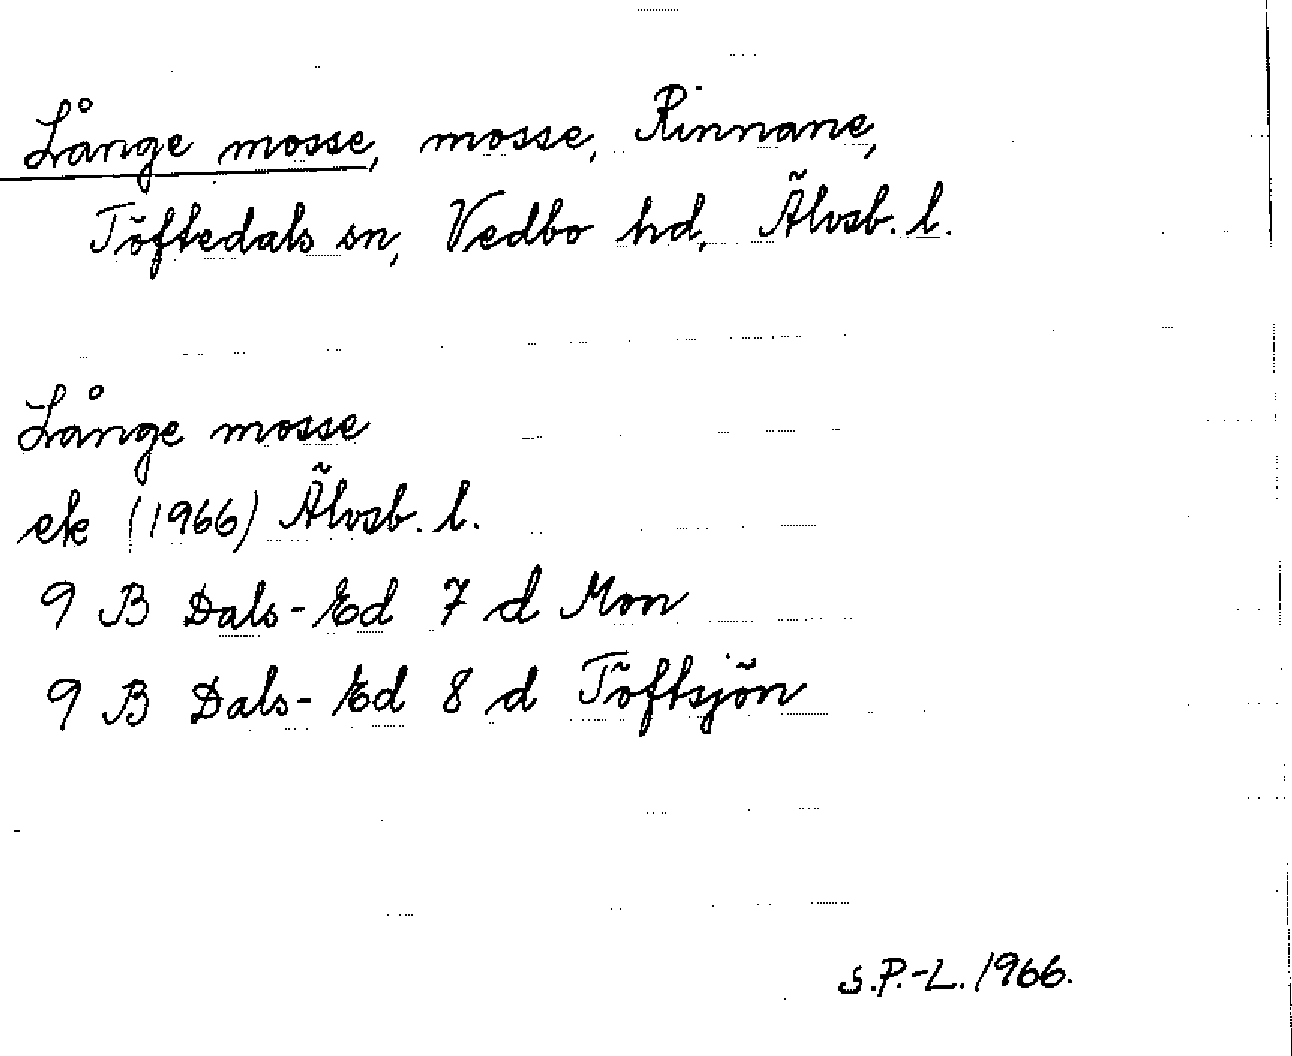 Långe mosse, mosse, Rinnane,
Töftedals sn, Vedbo hd, Älvsb. l.
Långe mosse
ek (1966) Älvsb. l.
9 B Dals-Ed 7 d Mon
9 B Dals-Ed 8 d Töftsjön
S.P.-L. 1966.